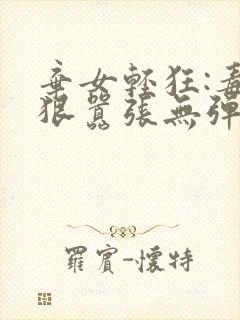 棄女輕狂:毒
狠囂張無彈
羅賓-懷特